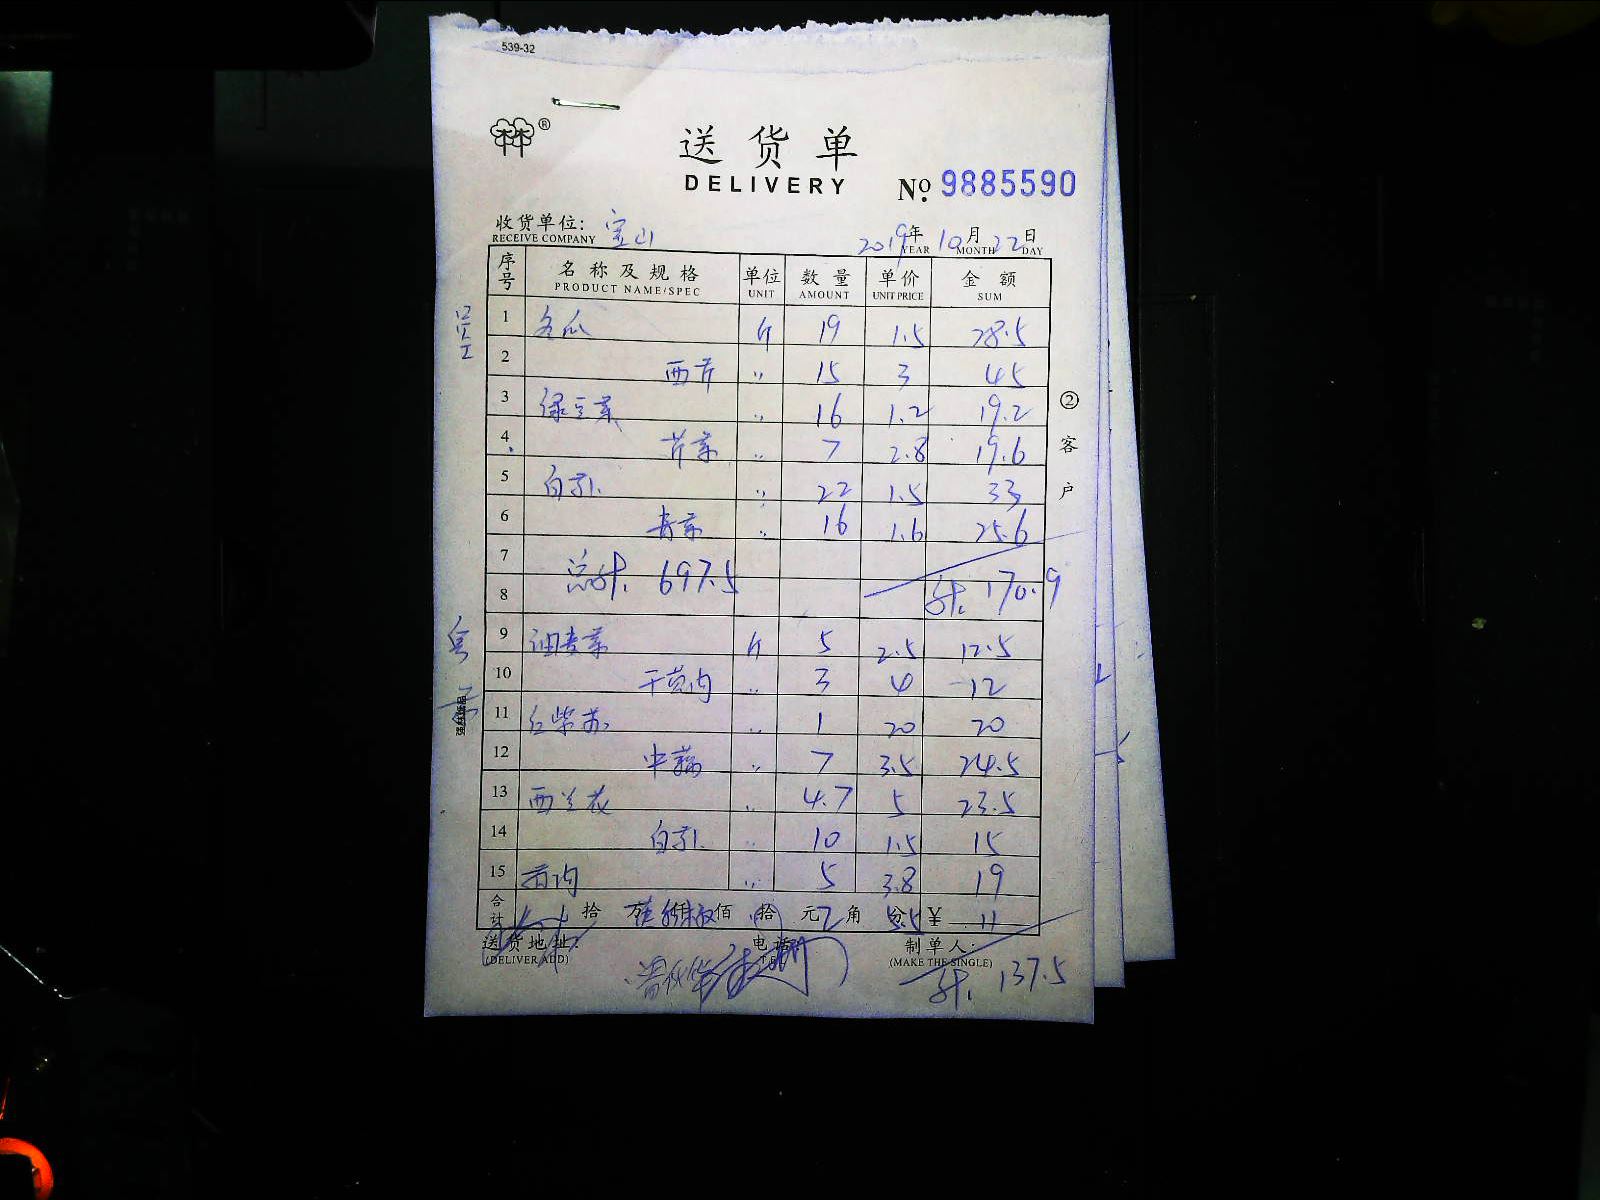 539-32
®
送货单
DELIVERY
№. 9885590
收货单位: 宝山
RECEIVE COMPANY
2019年 10月 22日
YEAR MONTH DAY
序号 名称及规格 单位 数量 单价 金额
PRODUCT NAME/SPEC UNIT AMOUNT UNIT PRICE SUM
1 冬瓜 斤 19 1.5 28.5
2 西芹 〃 15 3 45
3 绿豆菜 〃 16 1.2 19.2
4 芹菜 〃 7 2.8 19.6
5 白 〃 22 1.5 33
6 青菜 〃 16 1.6 25.6
7 总计. 697.5
8 计. 170.9
9 油麦菜 斤 5 2.5 12.5
10 〃 3 4 12
11 红紫苏 〃 1 20 20
12 中藕 〃 7 3.5 24.5
13 西兰花 〃 4.7 5 23.5
14 白 〃 10 1.5 15
15 〃 5 3.8 19
合计 拾 万 仟 佰 拾 元 2 角 分 5.5 ¥ 11
送货地址: 电话 制单人:
(DELIVER ADD) TEL (MAKE THE SINGLE)
计. 137.5
②客户